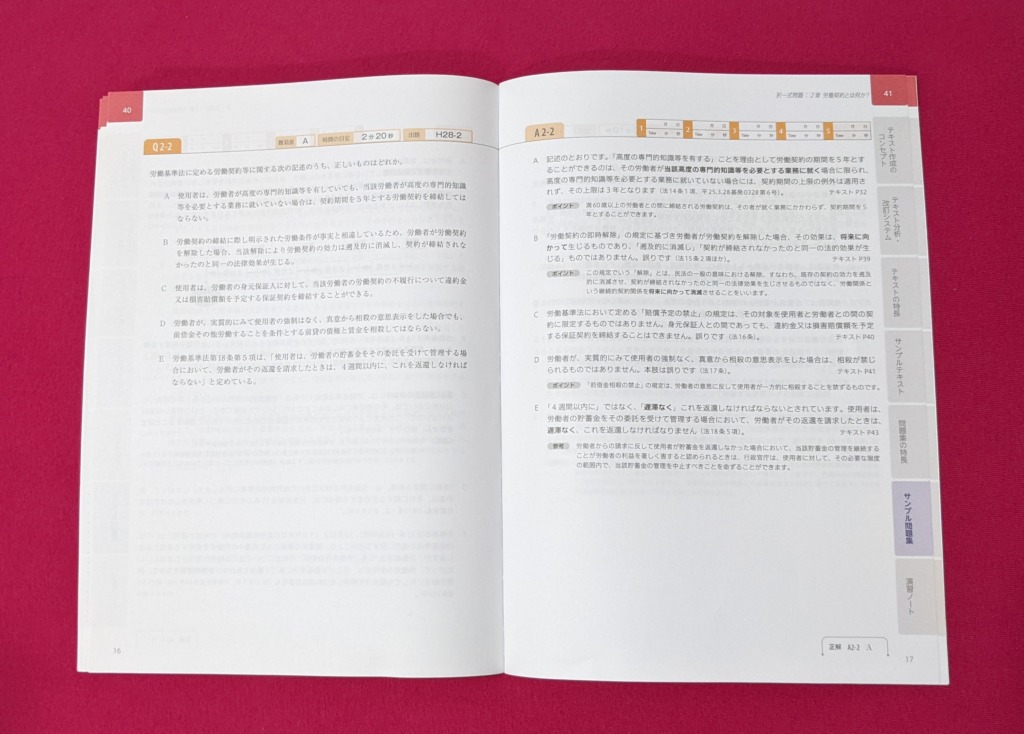 40
Q2-2
難易度 A 時間の目安 2分20秒 出題 H28-2
労働基準法に定める労働契約等に関する次の記述のうち、正しいものはどれか。
A 使用者は、労働者が高度の専門的知識等を有していても、当該労働者が高度の専門的知識
等を必要とする業務に就いていない場合は、契約期間を5年とする労働契約を締結しては
ならない。
B 労働契約の締結に際し明示された労働条件が事実と相違しているため、労働者が労働契約
を解除した場合、当該解除により労働契約の効力は遡及的に消滅し、契約が締結されな
かったのと同一の法律効果が生じる。
C 使用者は、労働者の身元保証人に対して、当該労働者の労働契約の不履行について違約金
又は損害賠償額を予定する保証契約を締結することができる。
D 労働者が、実質的にみて使用者の強制はなく、真意から相殺の意思表示をした場合でも、
前借金その他労働することを条件とする前貸の債権と賃金を相殺してはならない。
E 労働基準法第18条第5項は、「使用者は、労働者の貯蓄金をその委託を受けて管理する場
合において、労働者がその返還を請求したときは、4週間以内に、これを返還しなければ
ならない」と定めている。
16
択一式問題：2章 労働契約とは何か？
41
A2-2
1 月 日 Time 分 秒 2 月 日 Time 分 秒 3 月 日 Time 分 秒 4 月 日 Time 分 秒 5 月 日 Time 分 秒
A 記述のとおりです。「高度の専門的知識等を有する」ことを理由として労働契約の期間を5年とす
ることができるのは、その労働者が当該高度の専門的知識等を必要とする業務に就く場合に限られ、
高度の専門的知識等を必要とする業務に就いていない場合には、契約期間の上限の例外は適用さ
れず、その上限は3年となります（法14条1項、平25.3.28基発0328第6号）。 テキスト P32
ポイント 満60歳以上の労働者との間に締結される労働契約は、その者が就く業務にかかわらず、契約期間を5
年とすることができます。
B 「労働契約の即時解除」の規定に基づき労働者が労働契約を解除した場合、その効果は、将来に向
かって生じるものであり、「遡及的に消滅し」「契約が締結されなかったのと同一の法的効果が生
じる」ものではありません。誤りです（法15条2項ほか）。 テキスト P39
ポイント この規定でいう「解除」とは、民法の一般の意味における解除、すなわち、既存の契約の効力を遡及
的に消滅させ、契約が締結されなかったのと同一の法律効果を生じさせるものではなく、労働関係と
いう継続的契約関係を将来に向かって消滅させることをいいます。
C 労働基準法において定める「賠償予定の禁止」の規定は、その対象を使用者と労働者との間の契
約に限定するものではありません。身元保証人との間であっても、違約金又は損害賠償額を予定
する保証契約を締結することはできません。誤りです（法16条）。 テキスト P40
D 労働者が、実質的にみて使用者の強制なく、真意から相殺の意思表示をした場合は、相殺が禁じ
られるものではありません。本肢は誤りです（法17条）。 テキスト P41
ポイント 「前借金相殺の禁止」の規定は、労働者の意思に反して使用者が一方的に相殺することを禁ずるものです。
E 「4週間以内に」ではなく、「遅滞なく」これを返還しなければならないとされています。使用者は、
労働者の貯蓄金をその委託を受けて管理する場合において、労働者がその返還を請求したときは、
遅滞なく、これを返還しなければなりません（法18条5項）。 テキスト P43
参考 労働者からの請求に反して使用者が貯蓄金を返還しなかった場合において、当該貯蓄金の管理を継続する
ことが労働者の利益を著しく害すると認められるときは、行政官庁は、使用者に対して、その必要な限度
の範囲内で、当該貯蓄金の管理を中止すべきことを命ずることができます。
正解 A2-2 A
17
テキスト作成の
コンセプト
テキスト分析・
改訂システム
テキストの特長
サンプルテキスト
問題集の特長
サンプル問題集
演習ノート